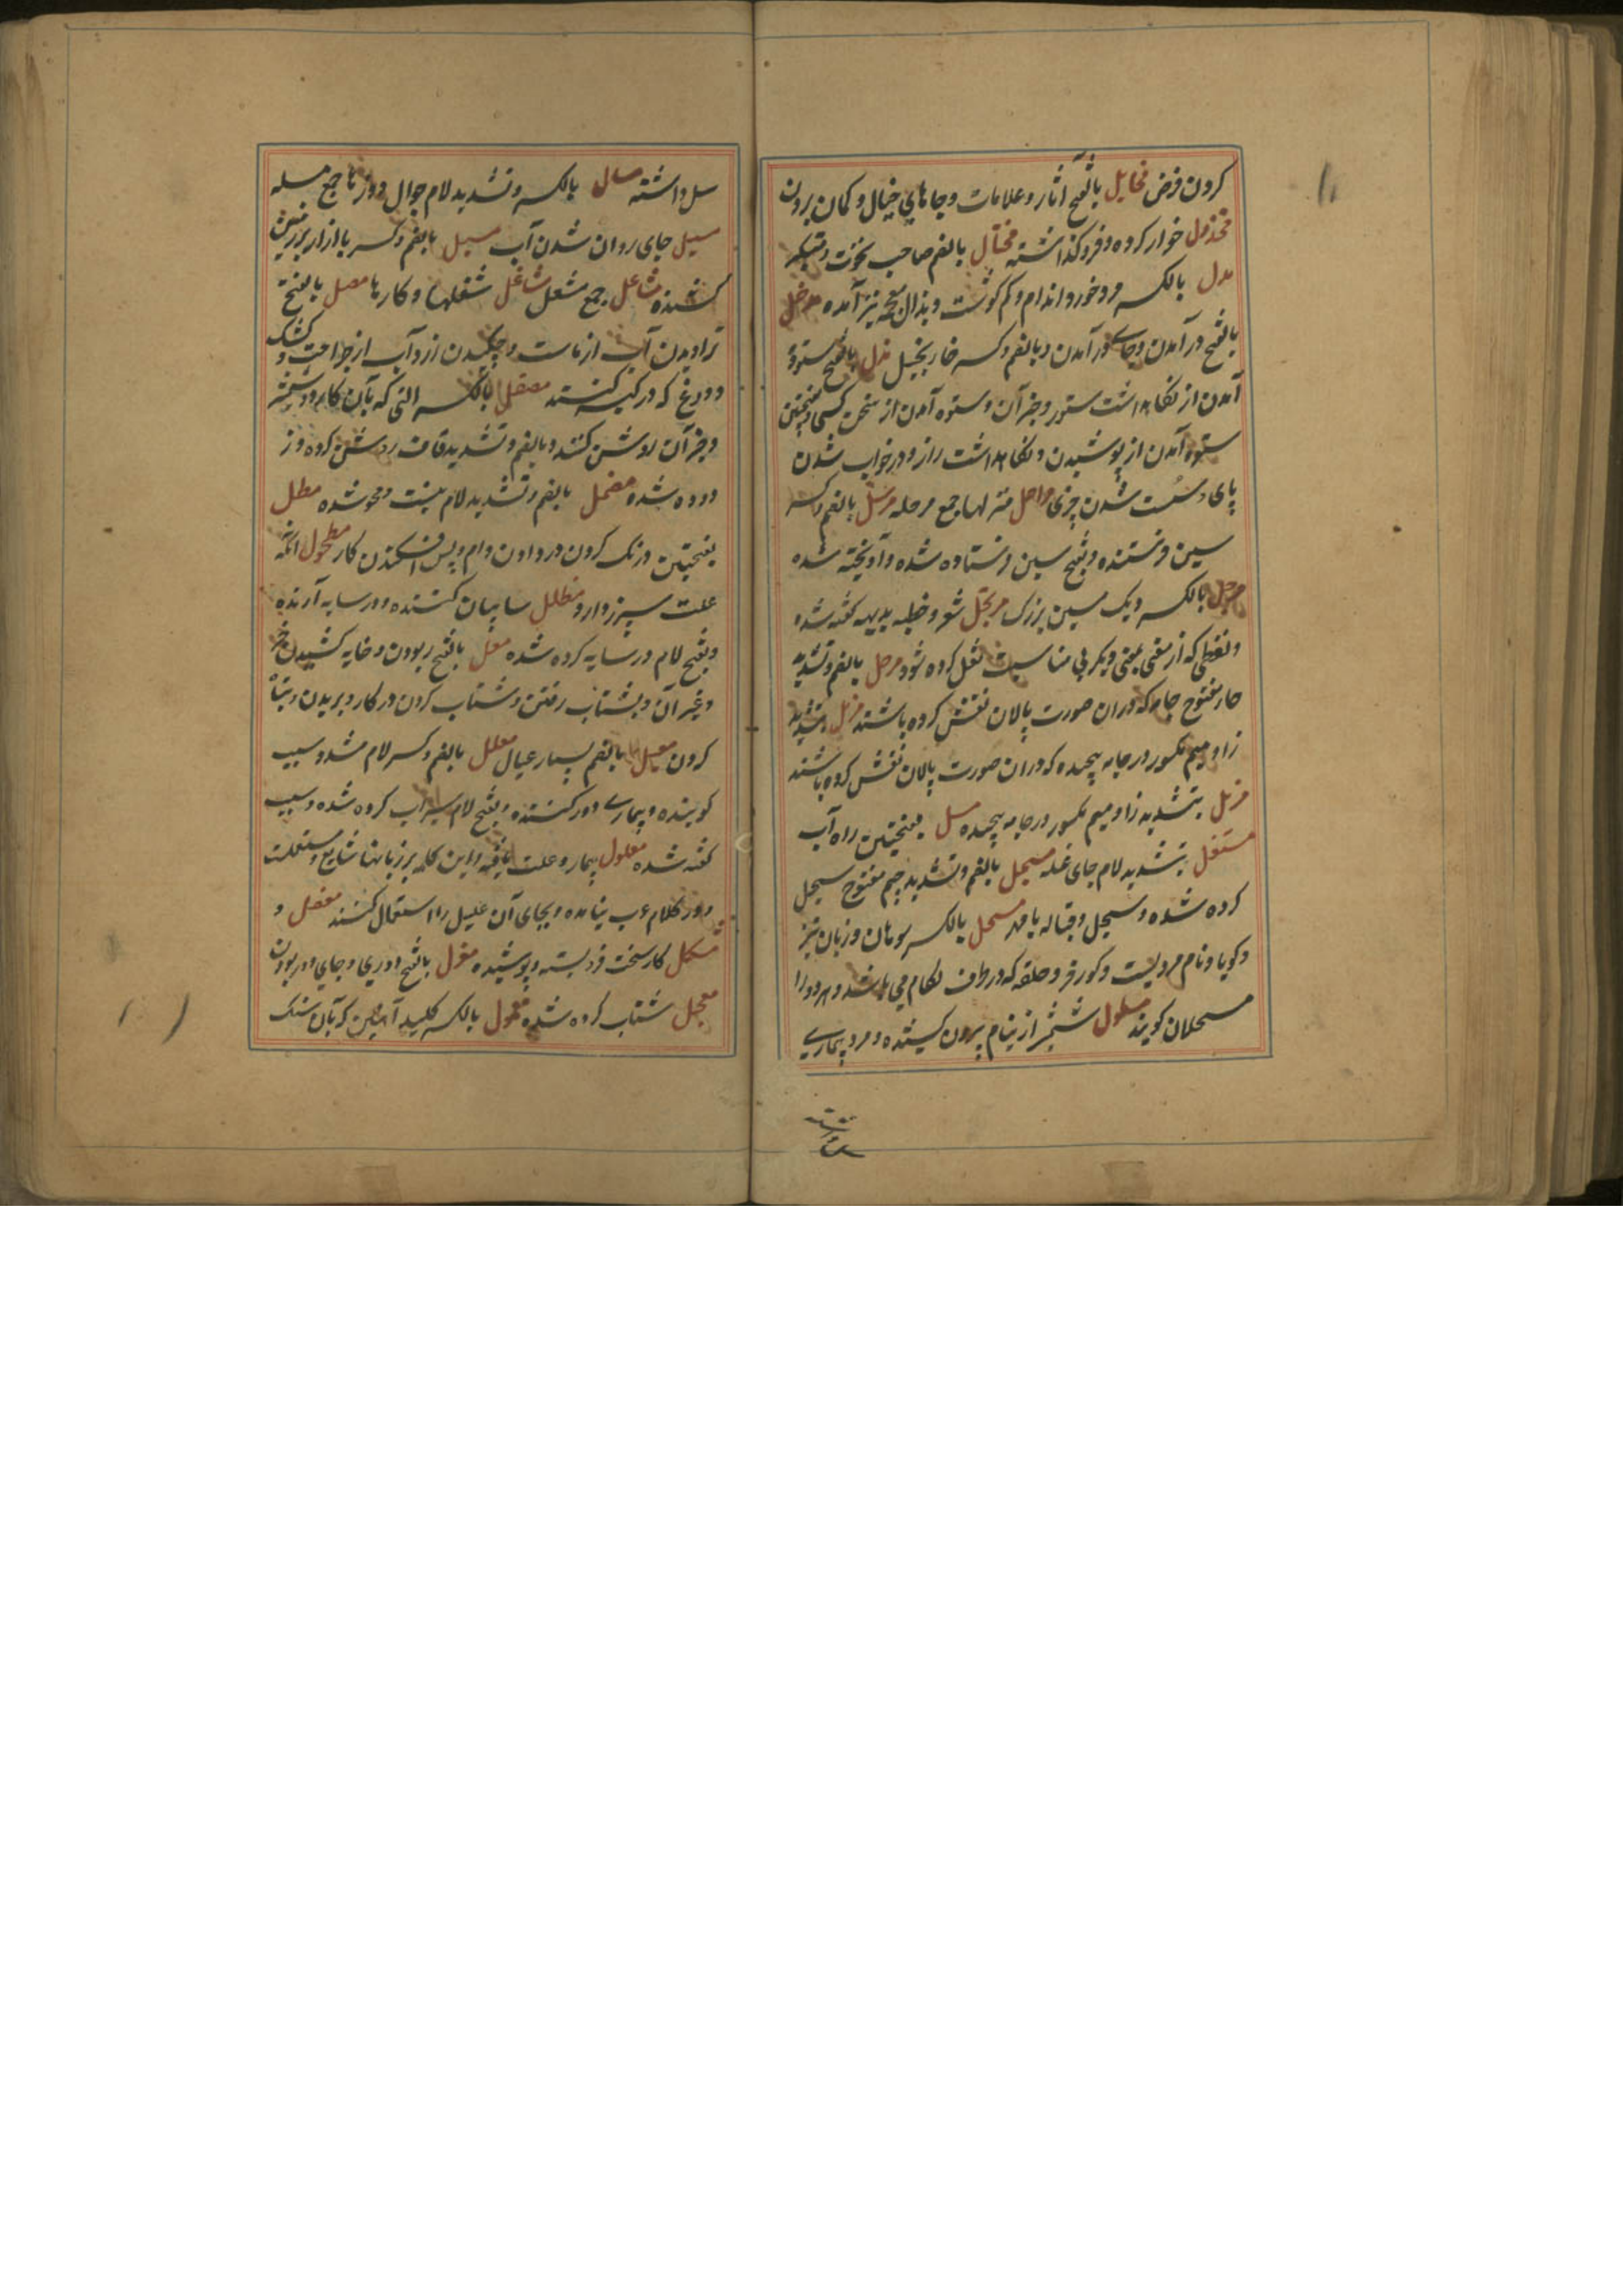 کردن فرض مخایل بالفتح آثار و علامات و جاهای خیال و کمان بردن
مخذول خوار کرده و فرو کذاشته مختال بالضم صاحب نخوت و متکبر
مدل بالکسر مرد خورد اندام و کم کوشت و بذال معجمه نیز آمده مدخل
بالفتح در آمدن و جای در آمدن و بالضم و کسر خا بخیل مذل بالفتح ستوه
آمدن از نکاهداشت ستور و جز آن و ستوه آمدن از سخن کسی و بفتحتین
ستوه آمدن از پوشیدن و نکاهداشت راز و در خواب شدن
پای و سست شدن چیزی مراحل منزلها جمع مرحله مرسل بالضم و کسر
سین فرستنده و بفتح سین فرستاده شده و آویخته شده
مرجل بالکسر دیک مسین بزرک مرتجل شعر و خطبه بدیهه کفته شده
و لفظی که از معنی بمعنی دیکر بی مناسبت نقل کرده شود مرحل بالضم و تشدید
حاء مفتوح جامه که در ان صورت پالان نقش کرده باشند مزمل بتشدید
زا و میم مکسور در جامه پیچیده که در ان صورت پالان نقش کرده باشند
مزمل بتشدید زا و میم مکسور در جامه پیچیده مسل بفتحتین راه آب
مستغل بتشدید لام جای غله مسجل بالضم و تشدید جیم مفتوح سجل
کرده شده و سجل و قباله با مهر مسحل بالکسر سوهان و زبان تیز
و کویا و نام مردیست و کورخر و حلقه که در طرف لکام می باشد و هر دو را
مسحلان کویند مسلول شمشیر از نیام بیرون کشیده و مرد بیماری
سل داشته مسال بالکسر و تشدید لام جوال دوزها جمع مسله
مسیل جای روان شدن آب مسبل بالضم و کسر با ازار بزمین
کشنده مشاعل جمع مشعل مشاغل شغلها و کارها مصل بالفتح
تراویدن آب از ماست و چکیدن زردآب از جراحت و کشک
و دوغ که در کیسه کنند مصقل بالکسر التی که بآن کارد و شمشیر
و جز آن روشن کنند و بالضم و تشدید قاف روشن کرده و ز
دوده شده مضمحل بالضم و تشدید لام نیست و محو شده مطل
بفتحتین درنک کردن در دادن وام و پس افکندن کار مطحول انکه
علت سپرز دارد مظلل سایبان کننده و در سایه آرنده
و بفتح لام در سایه کرده شده معل بالفتح ربودن و خایه کشیدن خر
و غیر آن و بشتاب رفتن و شتاب کردن در کار و بریدن و تباه
کردن معیل بالضم بسیار عیال معلل بالضم و کسر لام مشدد سبب
کوینده و بیماری دور کننده و بفتح لام سیراب کرده شده و سبب
کفته شده معلول بیمار و علت یافته و این کلمه بر زبانها شایع و مستعملست
و در کلام عرب نیامده و بجای آن علیل را استعمال کنند معضل و
مشکل کار سخت فرو بسته و پوشیده معزل بالفتح دوری و جای دور بودن
معجل شتاب کرده شده معول بالکسر کلید آهنین که بآن سنک